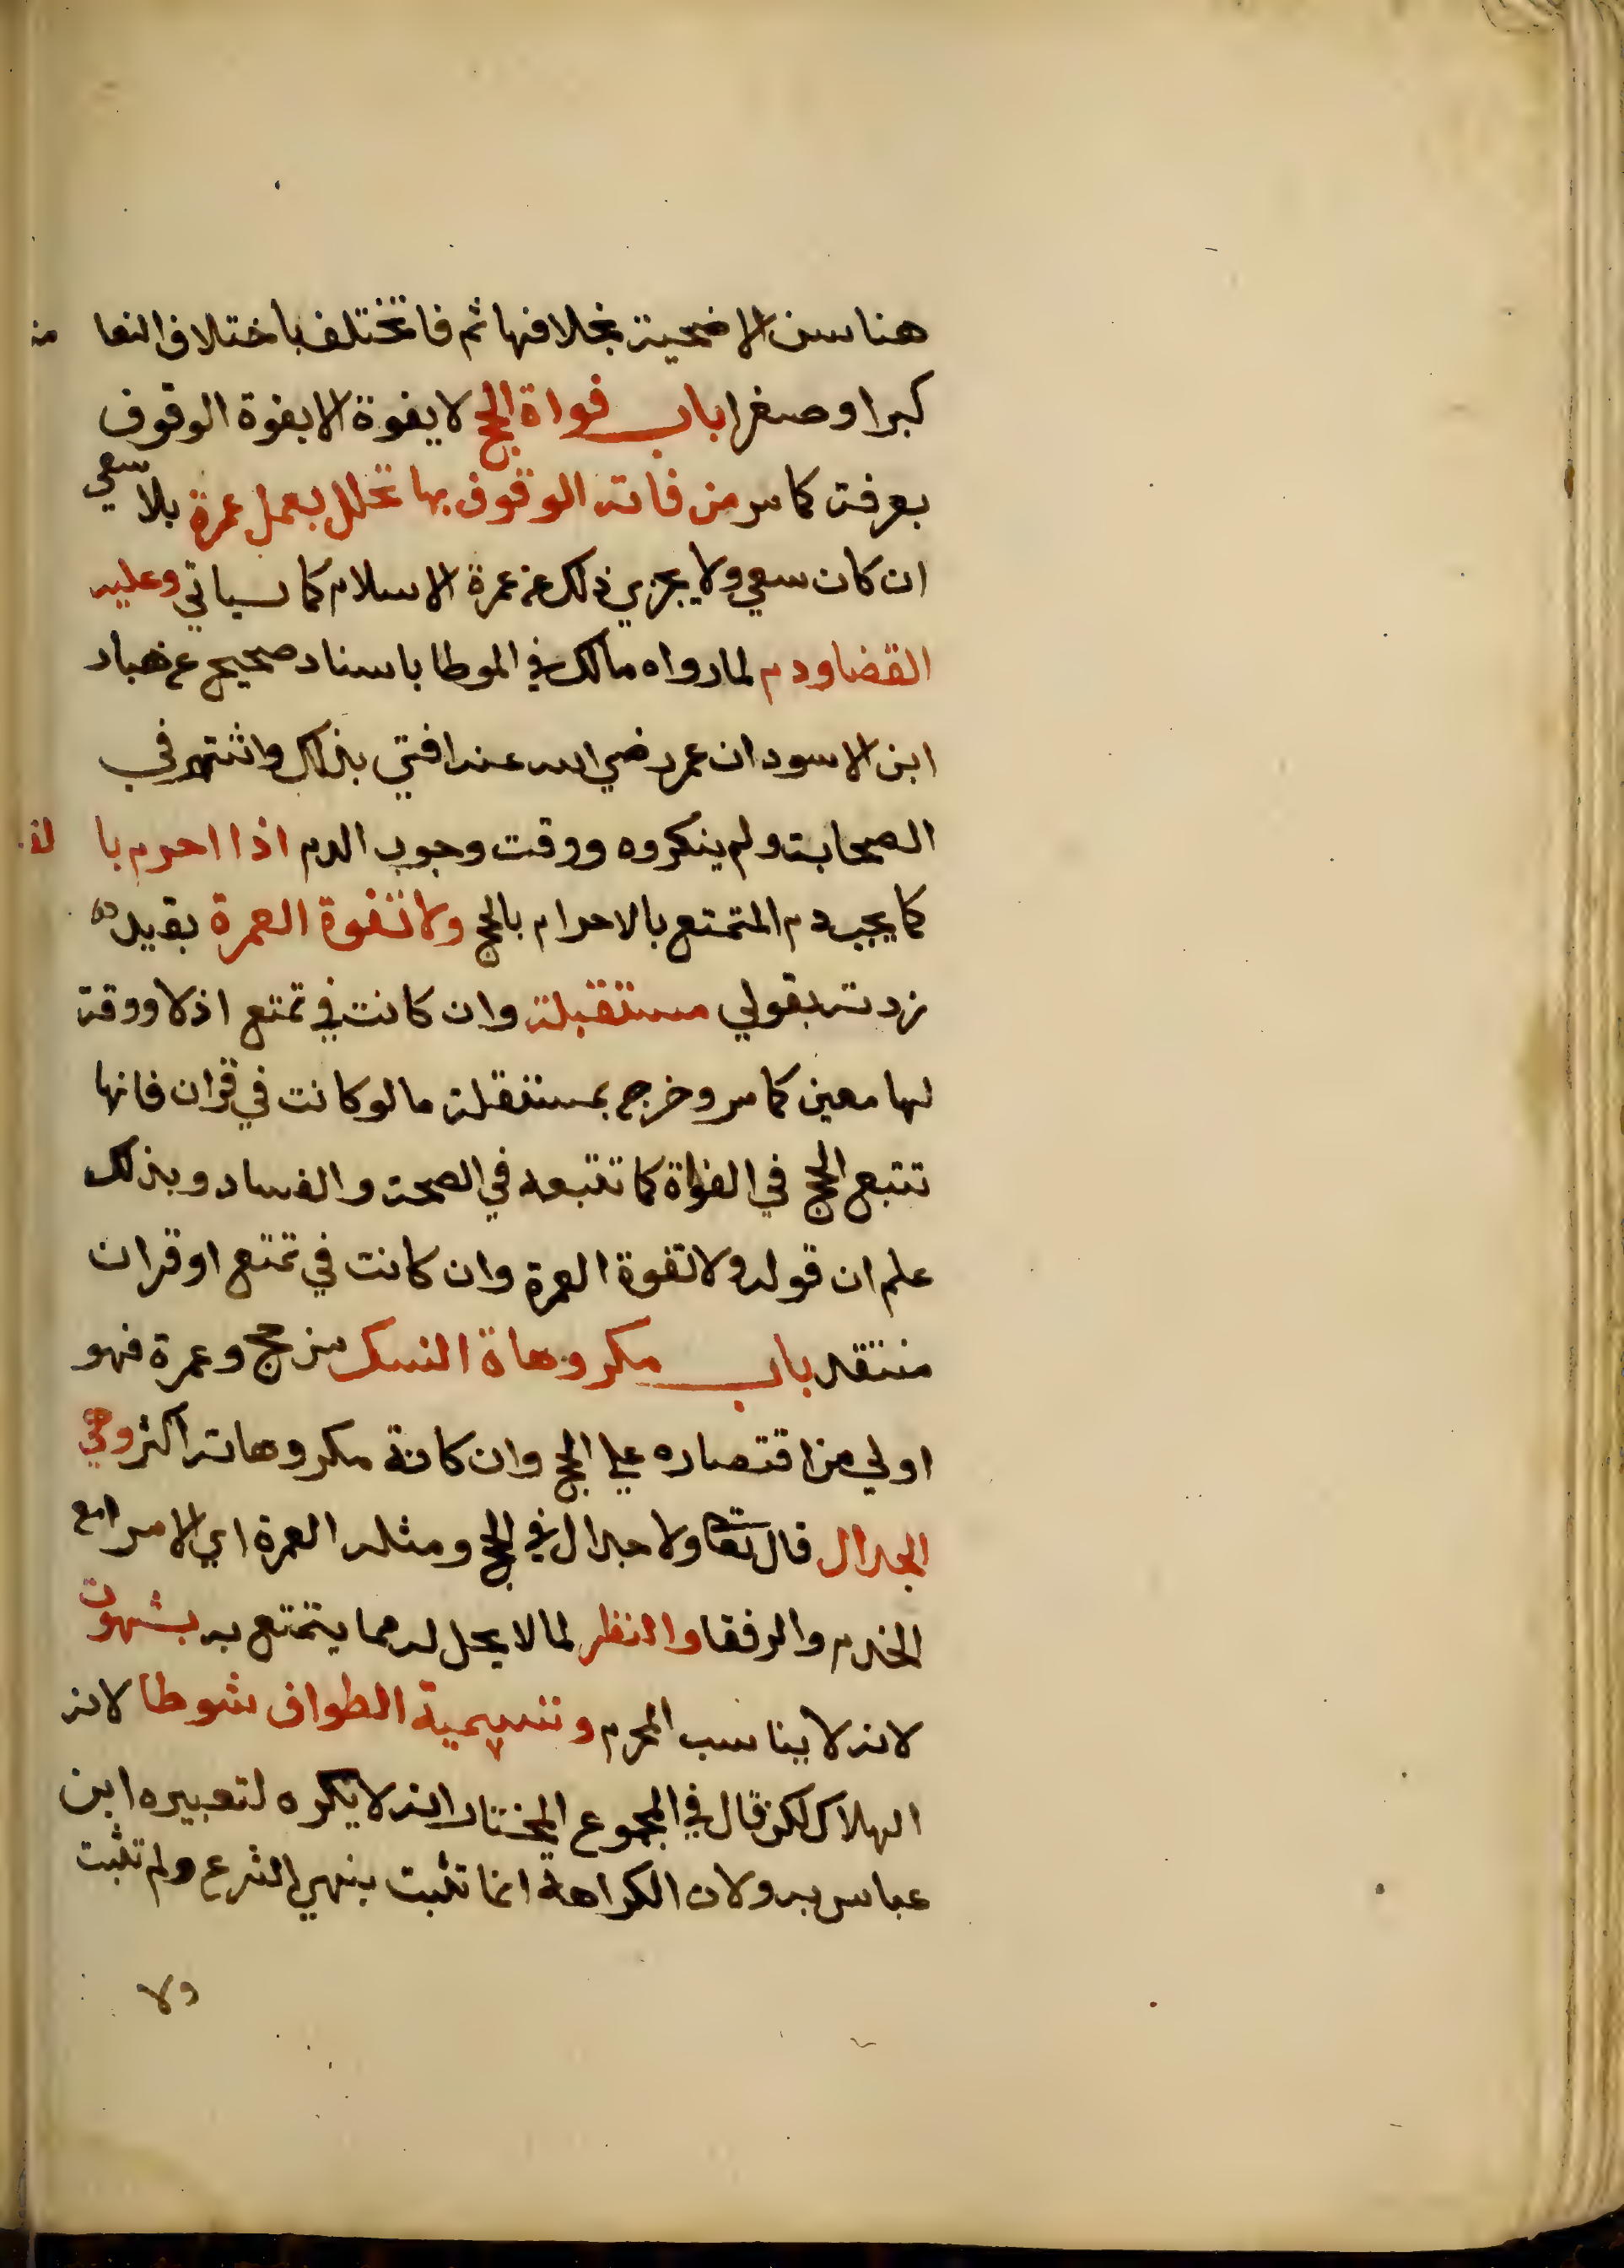 هنا سن الاضحية بخلافها ثم فانختلف باختلاف النعا مة
كبرا وصغرا باب فواة الحج لا يفوة الا بفوة الوقوف
بعرفة كما مر من فاته الوقوف بها تحلل بعمل عمرة بلا سعي
ان كان سعي ولا يجزي ذلك عن عمرة الاسلام كما سياتي وعليه
القضا ودم لما رواه مالك في الموطا باسناد صحيح عن هبار
ابن الاسود ان عمر رضي الله عنه افتي بذلك واشتهر في
الصحابة ولم ينكروه ووقت وجوب الدم اذا احرم با لقـ
كما يجب دم المتمتع بالاحرام بالحج ولا تفوة العمرة بقيد
زدته بقولي مستقبلة وان كانت في تمتع اذ لا ووقة
لها معين كما مر وخرج بمستقلة ما لو كانت في قران فانها
تتبع الحج في الفواة كما تتبعه في الصحة والفساد وبذلك
علم ان قوله ولا تفوة العمرة وان كانت في تمتع او قران
منتقد باب مكروهاة النسك من حج وعمرة فهو
اولي من اقتصاره علي الحج وان كانة مكروهاته اكثر وهي
الجدال قال تعا ولا جدال في الحج ومثله العمرة اي لا مرا مع
الخدم والرفقا والنظر لما لا يحل له مما يتمتع به بشهوة
لانه لا يناسب المحرم وتسمية الطواف شوطا لانه
الهلاك لكن قال في المجموع المختار انه لا يكره لتعبيره ابن
عباس به ولان الكراهة انما تثبت بنهي الشرع ولم تثبت
ولا